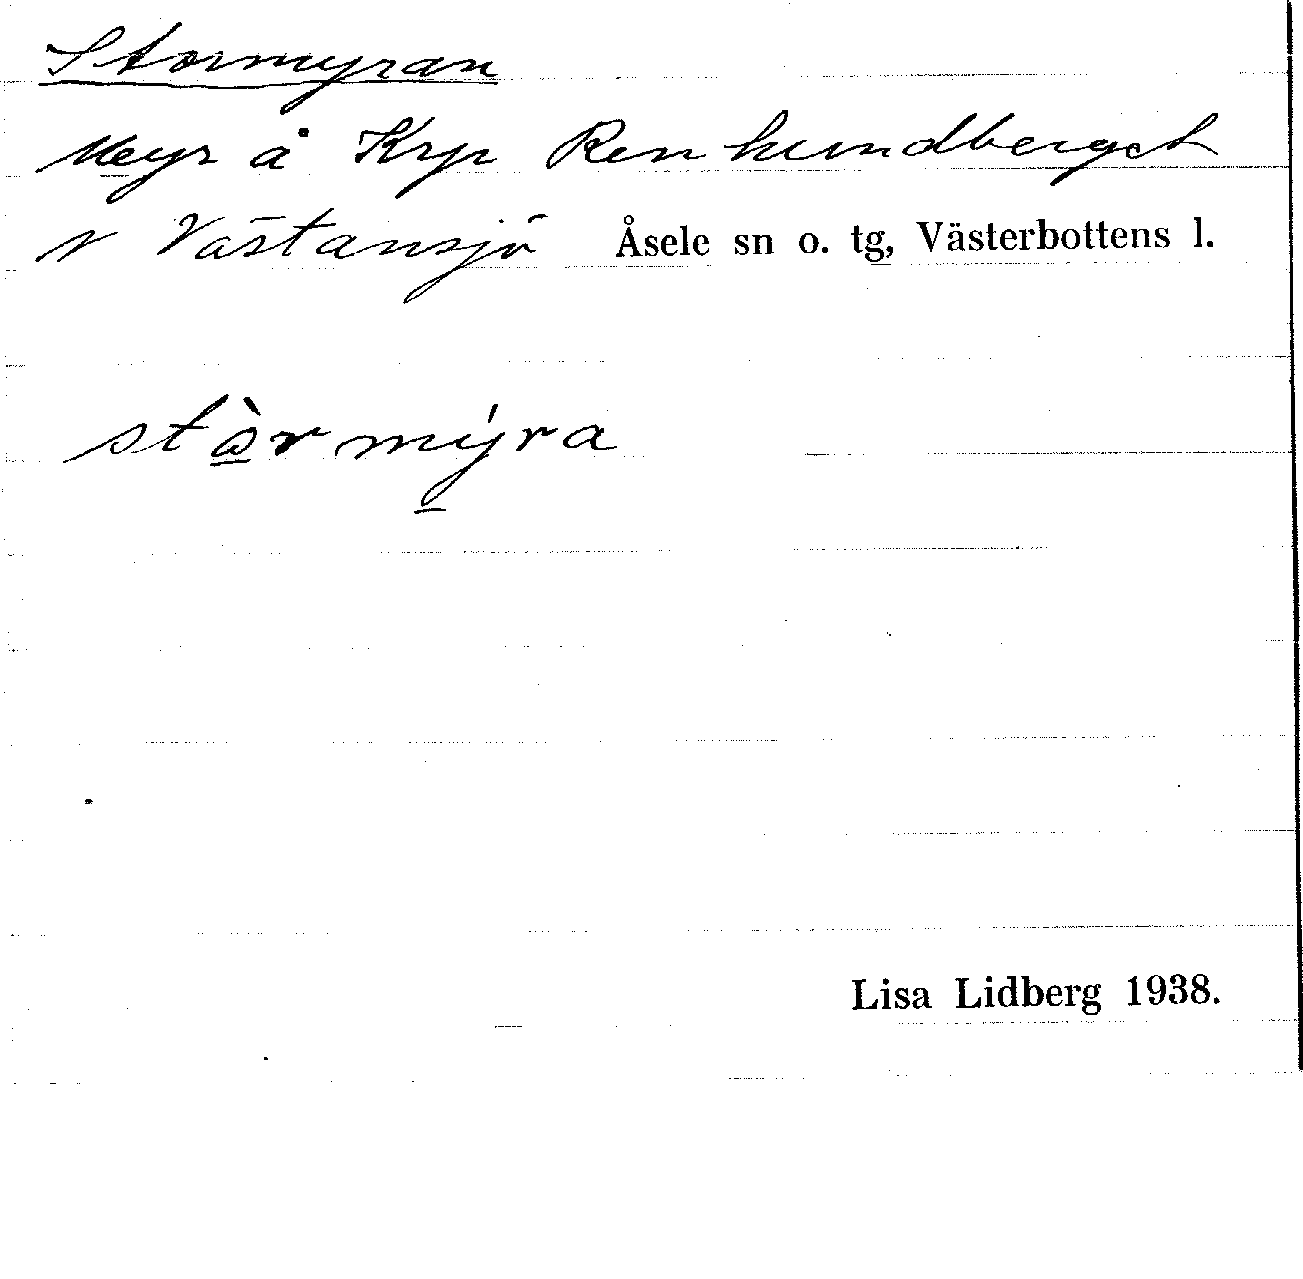 Stormyran
Myr å Krp Renhundberget
v Västansjö Åsele sn o. tg, Västerbottens l.
stò̲rmý̲ra
Lisa Lidberg 1938.